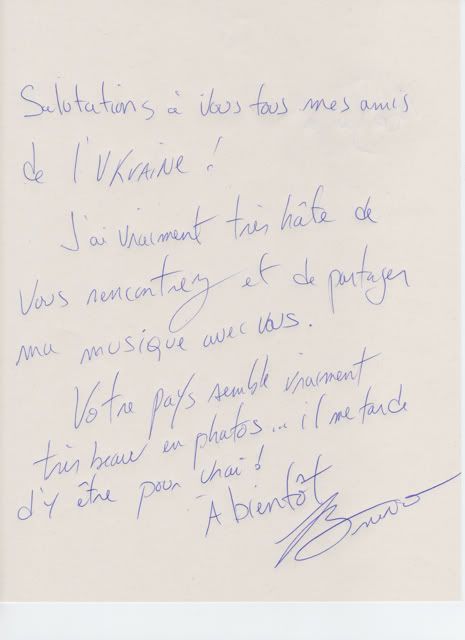 Salutations à vous tous mes amis
de l'UKRAINE !
J'ai vraiment très hâte de
vous rencontrez et de partager
ma musique avec vous.
Votre pays semble vraiment
très beau en photos... il me tarde
d'y être pour vrai !
A bientôt
Bruno